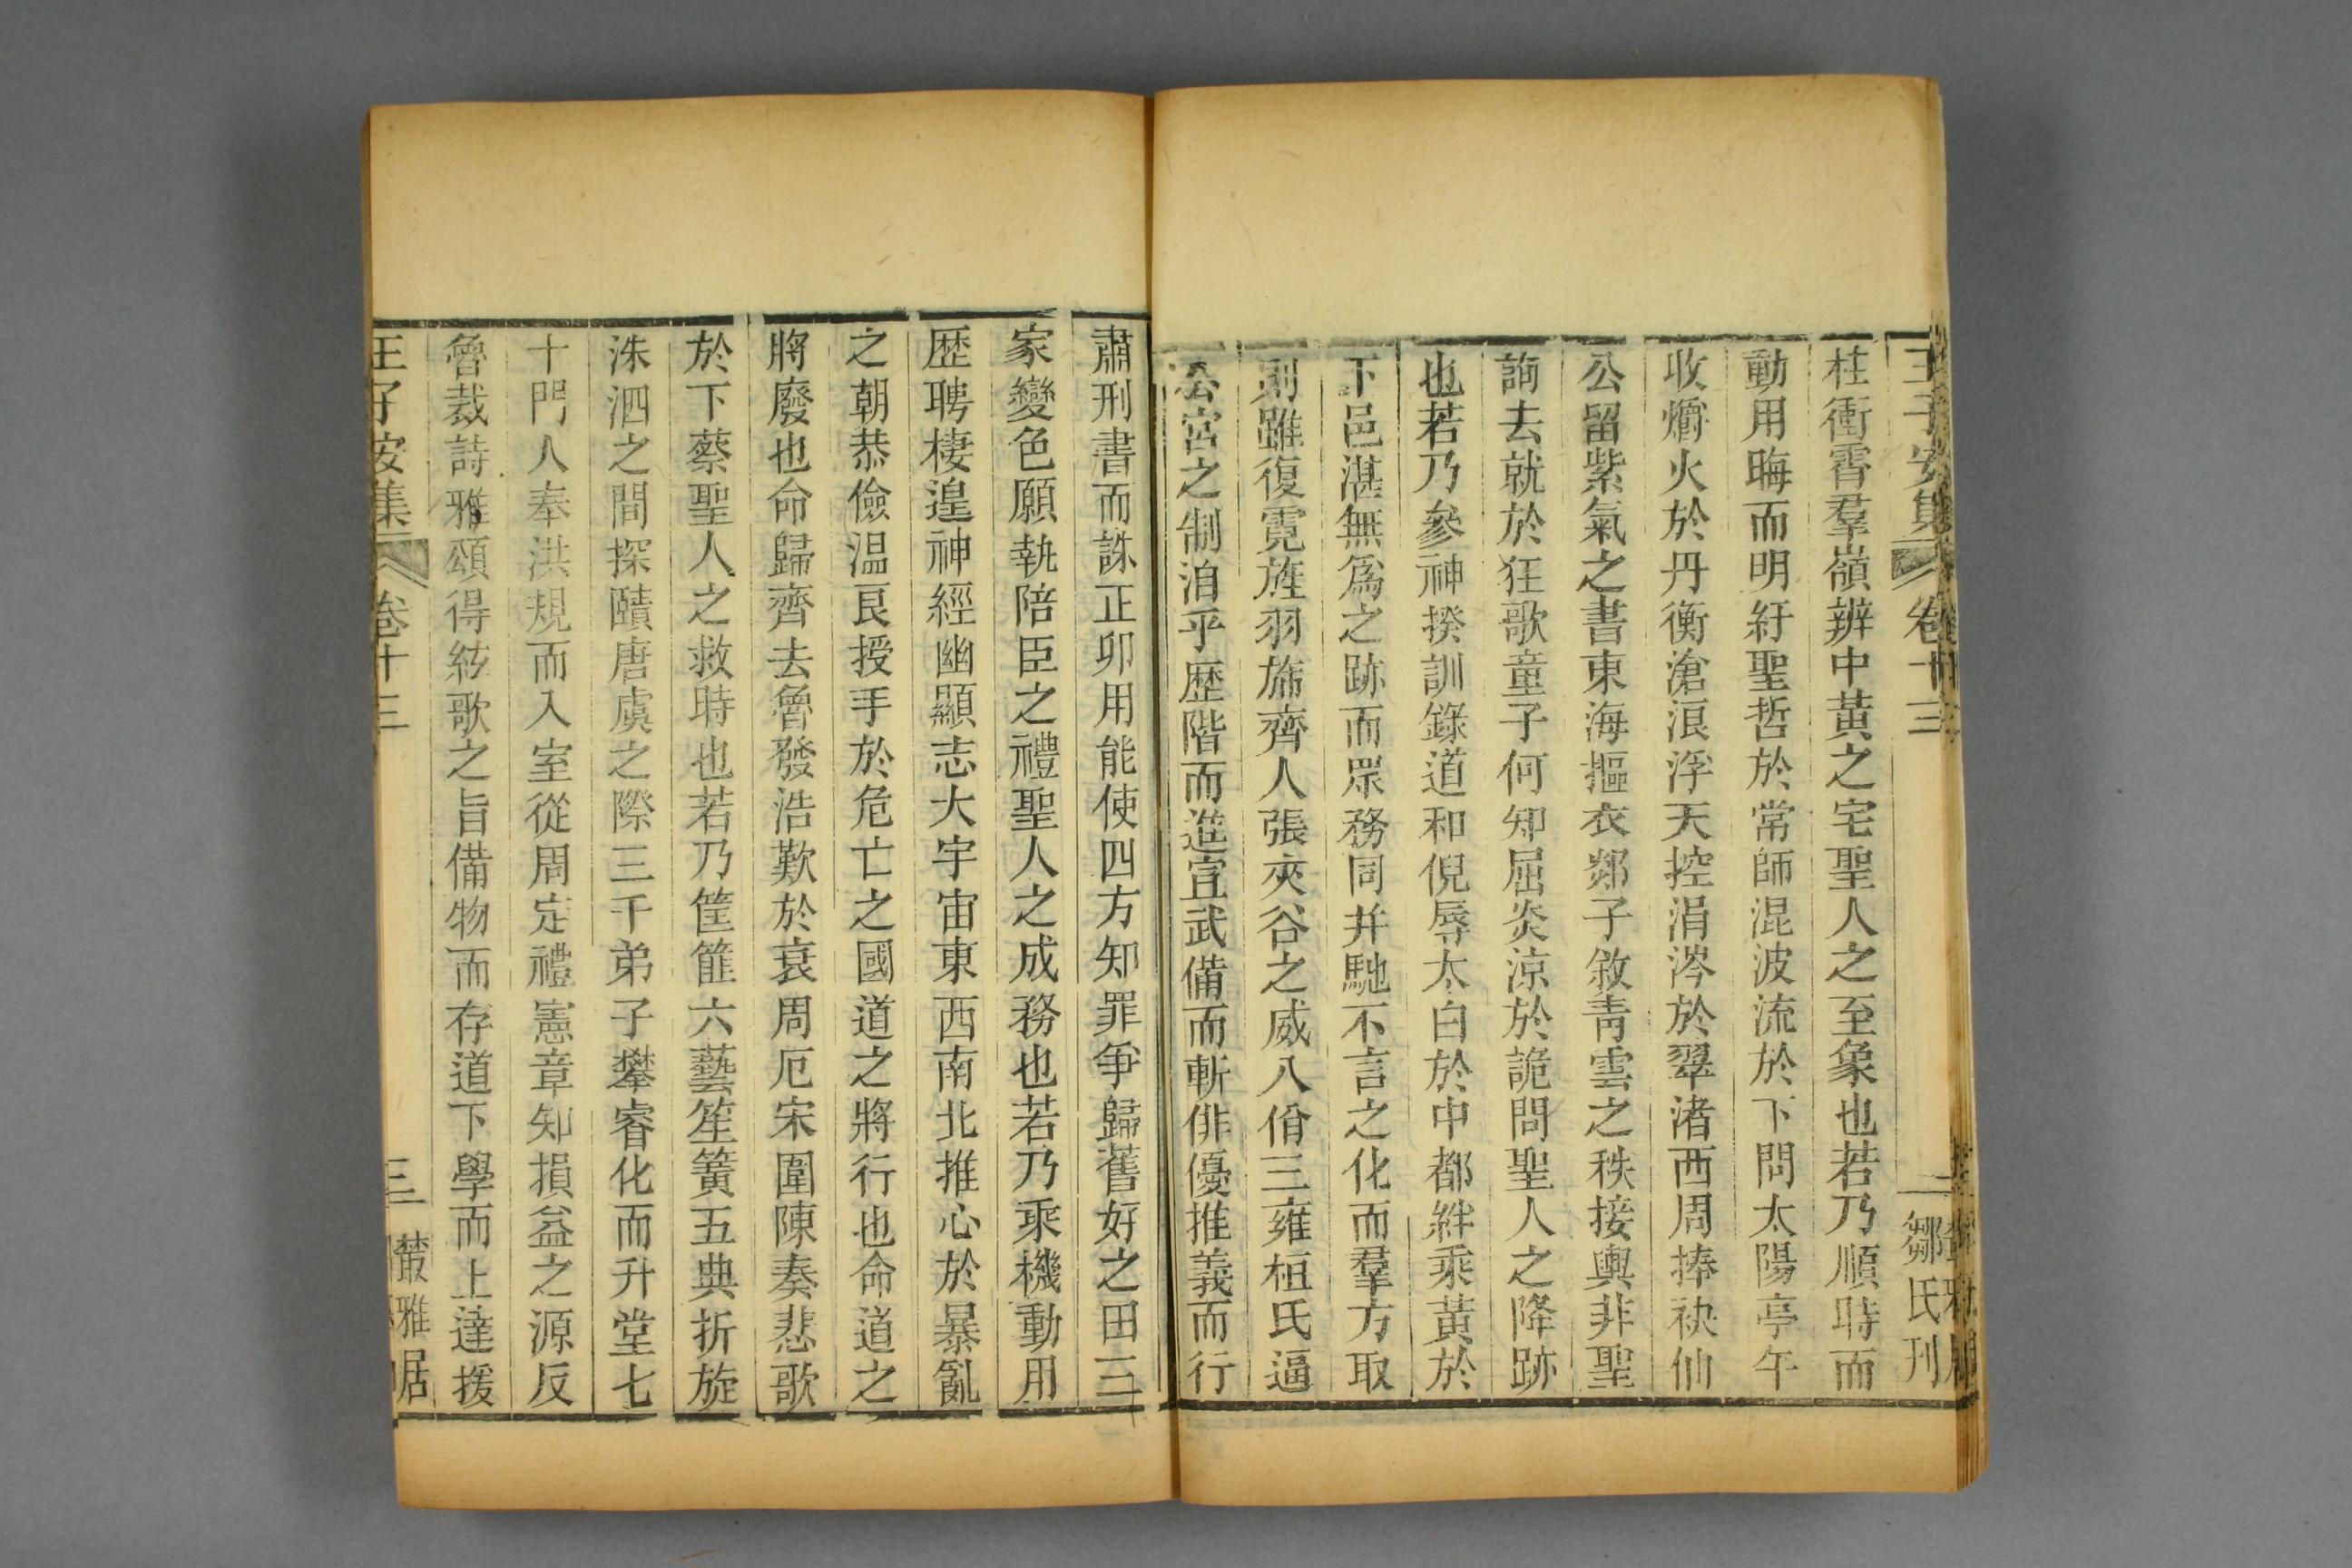 王子安集 卷十三 二 鄒氏刊
柱衝霄羣嶺辨中黃之宅聖人之至象也若乃順時而
動用晦而明紆聖哲於常師混波流於下問太陽亭午
收爝火於丹衡滄浪浮天控涓涔於翠渚西周捧袂仙
公留紫氣之書東海摳衣郯子敘青雲之秩接輿非聖
詢去就於狂歌童子何知屈炎涼於詭問聖人之降跡
也若乃參神揆訓錄道和倪辱太白於中都絆乘黃於
下邑湛無爲之跡而眾務同并馳不言之化而羣方取
則雖復霓旌羽旆齊人張夾谷之威八佾三雍桓氏逼
公宮之制洎乎歷階而進宣武備而斬俳優推義而行
肅刑書而誅正卯用能使四方知罪爭歸舊好之田三
家變色願執陪臣之禮聖人之成務也若乃乘機動用
歷聘棲遑神經幽顯志大宇宙東西南北推心於暴亂
之朝恭儉温良授手於危亡之國道之將行也命道之
將廢也命歸齊去魯發浩歎於衰周厄宋圍陳奏悲歌
於下蔡聖人之救時也若乃筐篚六藝笙簧五典折旋
洙泗之間探賾唐虞之際三千弟子攀睿化而升堂七
十門人奉洪規而入室從周定禮憲章知損益之源反
魯裁詩雅頌得絃歌之旨備物而存道下學而上達援
王子安集 卷十三 三 叢雅居